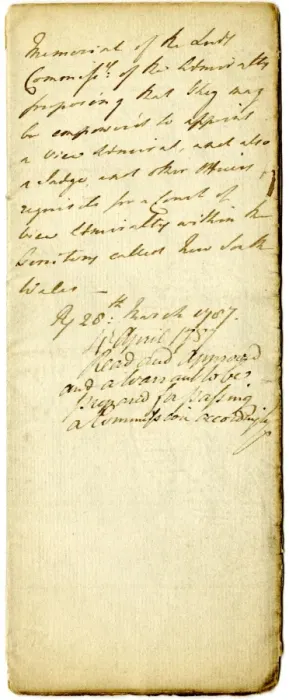 Memorial of the Lords
Commissrs. of the Admiralty
proposing that they may
be empowered to appoint
a Vice Admiral, and also
a Judge, and other Officers
requisite for a Court of
Vice Admiralty within the
Territory called New South
Wales —
28th March 1787.
April 1787
Read and Approved
and a Warrant to be
prepared for passing
a Commission accordingly